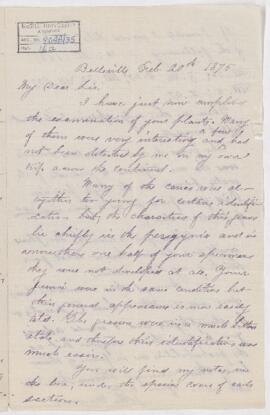 Belleville Feb 20th 1875
My Dear Sir.
I have just now completed
the examination of your plants. Many
of them were very interesting and a few
has not been detected by me in my own
trips across the continent.
Many of the carices were al-
together too young for certain identifi-
cation but the characters of this genus
lie chiefly in the perigynia and in
one half of your specimens
they were not developed at all. Your
Junci were in the same condition but
their general appearance is more easily
told. The grasses were in a much better
state and therefore their identification was
much easier.
You will find my notes in
the box, under the special cover of each
section.